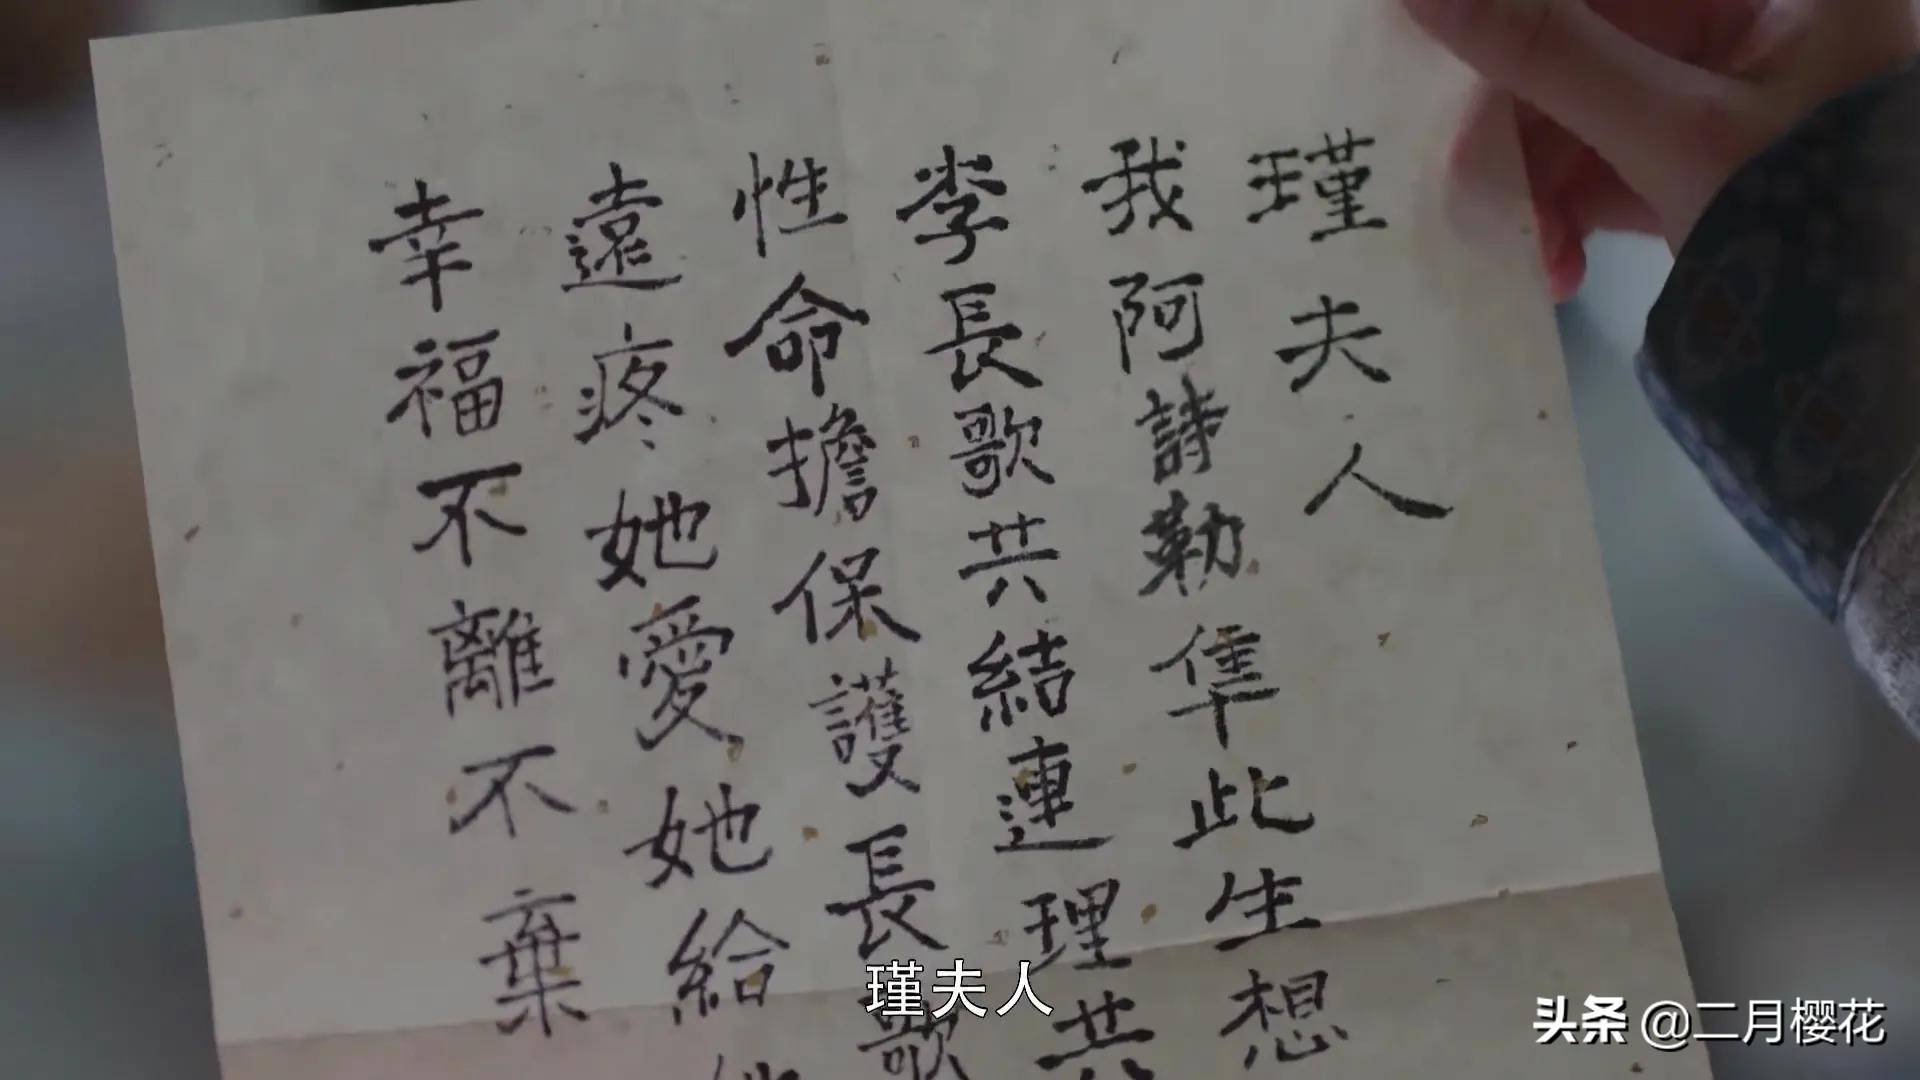 瑾夫人
我阿詩勒隼此生想
李長歌共結連理共
性命擔保護長歌
遠疼她愛她給
幸福不離不棄
瑾夫人
头条 @二月樱花